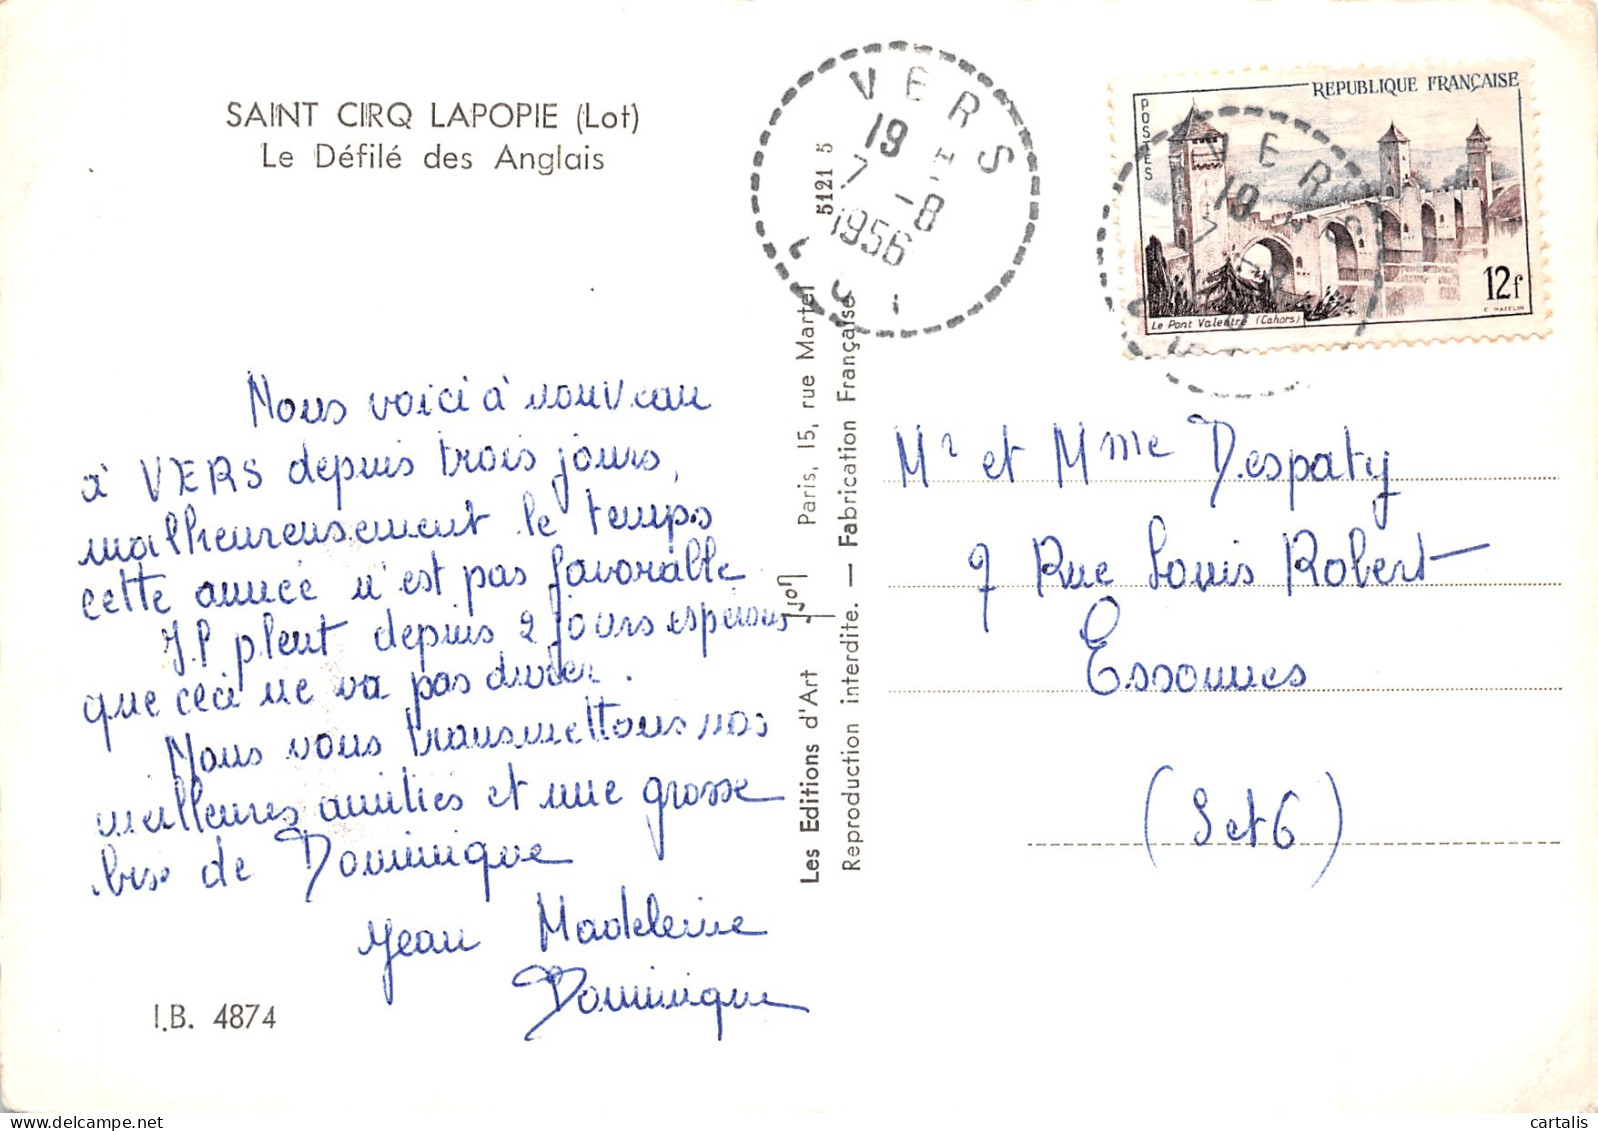 SAINT CIRQ LAPOPIE (Lot)
Le Défilé des Anglais
Nous voici à nouveau
à VERS depuis trois jours,
malheureusement le temps
cette année n'est pas favorable
Il pleut depuis 2 jours esperons
que ceci ne va pas durer.
Nous vous transmettons nos
meilleures amitiés et une grosse
bise de Dominique
Jean Madeleine
Dominique
I.B. 4874
Les Editions d'Art Yvon Paris, 15, rue Martel 5121 5
Reproduction interdite. — Fabrication Française
VERS
19
7 -8
1956
LOT
REPUBLIQUE FRANÇAISE
POSTES
12f
Le Pont Valentré (Cahors)
C. MAZELIN
VERS
19
Mr et Mme Despaty
7 Rue Louis Robert
Essonnes
(S et O)
cartalis